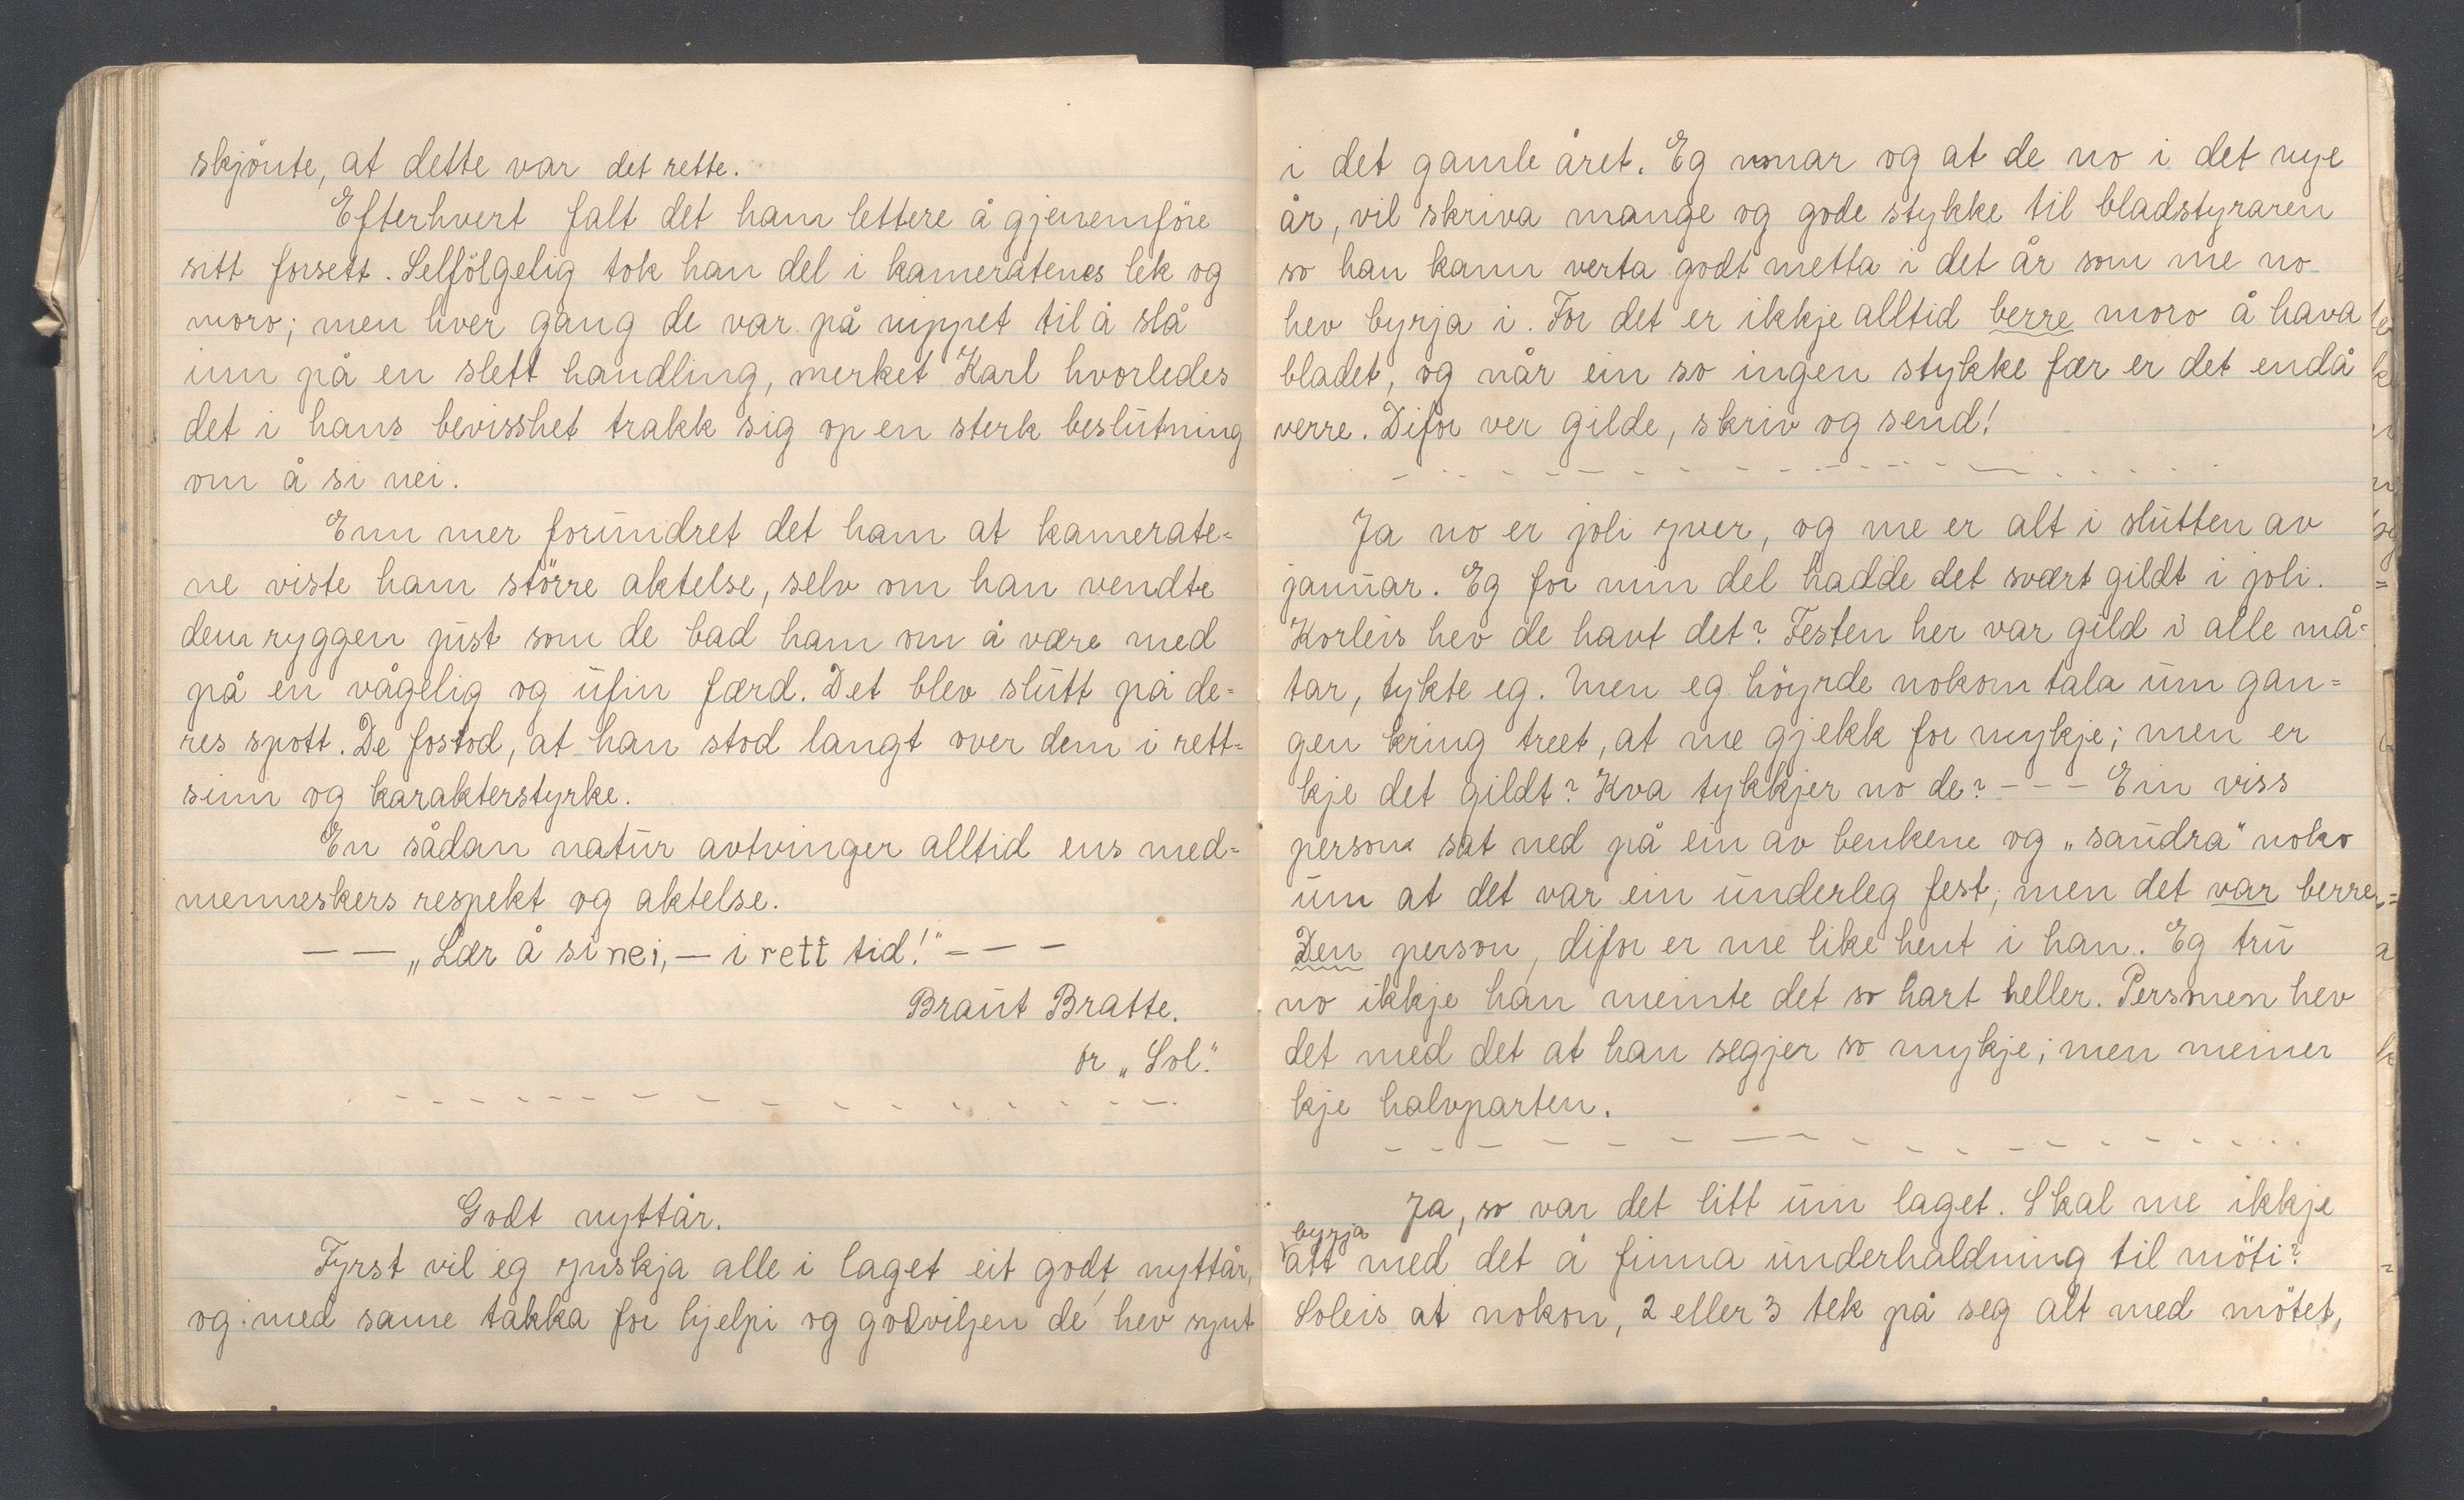 skjönte, at dette var det rette.
Efterhvert falt det ham lettere å gjenemföre
sitt forsett. Selfölgelig tok han del i kameratenes lek og
moro; men hver gang de var på nippet til å slå
inn på en slett handling, merket Karl hvorledes
det i hans bevissthet trakk sig op en sterk beslutning
om å si nei.
Enn mer forundret det ham at kamerate=
ne viste ham större aktelse, selv om han vendte
dem ryggen just som de bad ham om å være med
på en vågelig og ufin færd. Det blev slutt på de=
res spott. De fostod, at han stod langt over dem i rett=
sinn og karakterstyrke.
En sådan natur avtvinger alltid ens med=
menneskers respekt og aktelse.
— — „Lær å si nei, — i rett tid!" — — —
Braut Bratte.
or „Sol".
Godt nyttår.
Fyrst vil eg ynskja alle i laget eit godt nyttår,
og med same takka for hjelpi og godviljen de hev synt
i det gamle året. Eg vonar og at de no i det nye
år, vil skriva mange og gode stykke til bladstyraren
so han kann verta godt metta i det år som me no
hev byrja i. For det er ikkje alltid berre moro å hava
bladet, og når ein so ingen stykke fær er det endå
verre. Difor ver gilde, skriv og send!
Ja no er joli yver, og me er alt i slutten av
januar. Eg for min del hadde det svært gildt i joli.
Korleis hev de havt det? Festen her var gild i alle må=
tar, tykte eg. Men eg höyrde nokom tala um gan=
gen kring treet, at me gjekk for mykje; men er
kje det gildt? Kva tykkjer no de? - - - Ein viss
person sat ned på ein av benkene og „saudra" noko
um at det var ein underleg fest; men det var berre
Den person, difor er me like hent i han. Eg tru
no ikkje han meinte det so hart heller. Personen hev
det med det at han segjer so mykje; men meiner
kje halvparten.
Ja, so var det litt um laget. Skal me ikkje
byrja
att med det å finna underhaldning til möti?
Soleis at nokon, 2 eller 3 tek på seg alt med mötet,